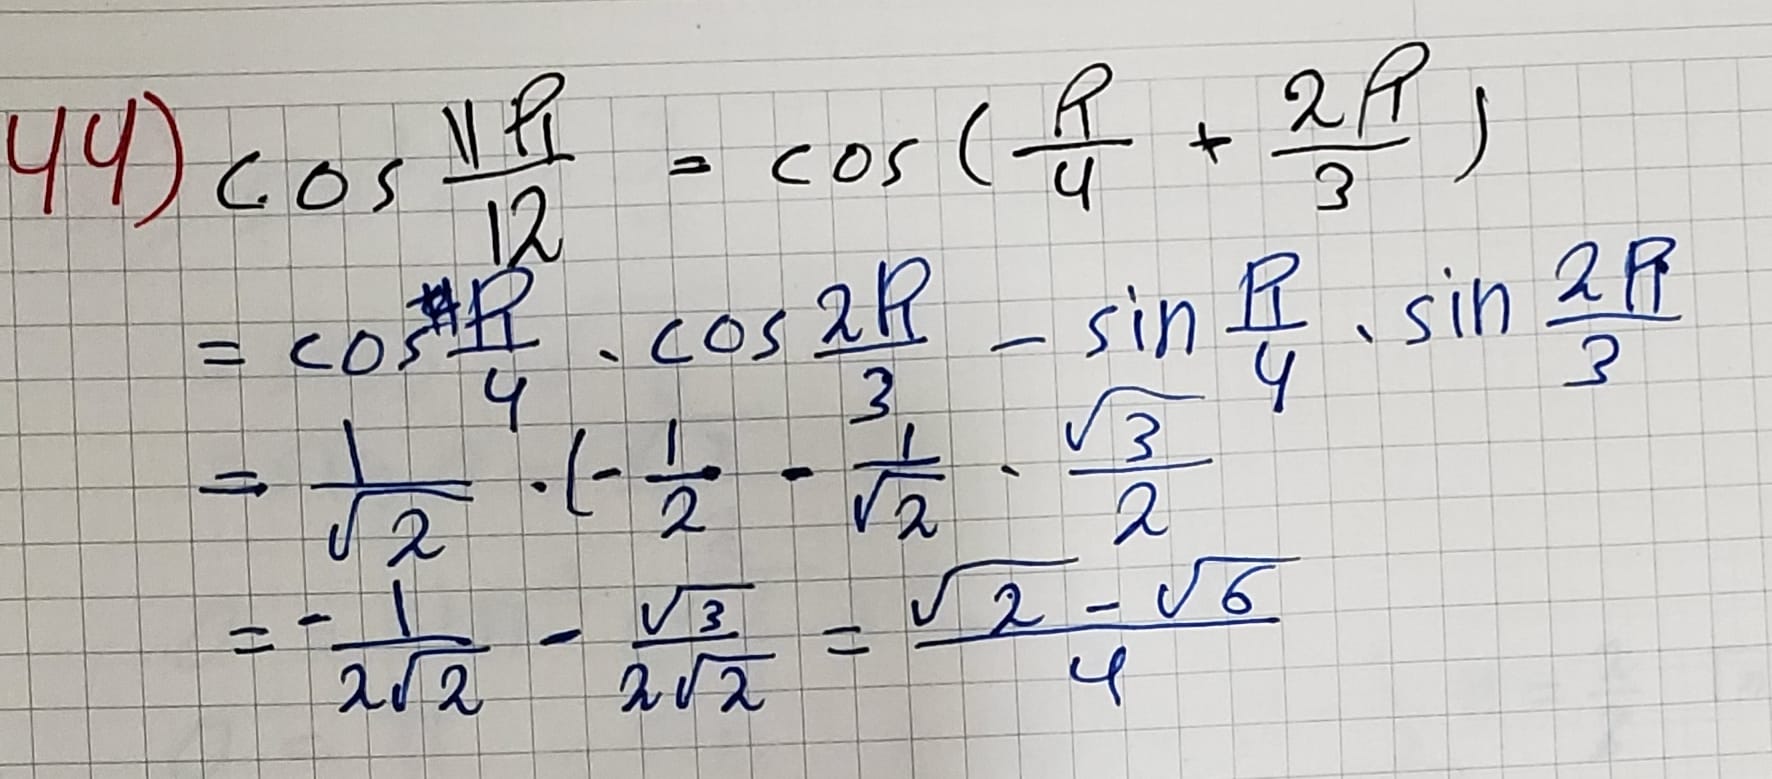 44) cos 11π/12 = cos (π/4 + 2π/3)
= cos π/4 . cos 2π/3 - sin π/4 . sin 2π/3
= 1/√2 . (- 1/2 - 1/√2 . √3/2
= - 1/2√2 - √3/2√2 = √2 - √6/4